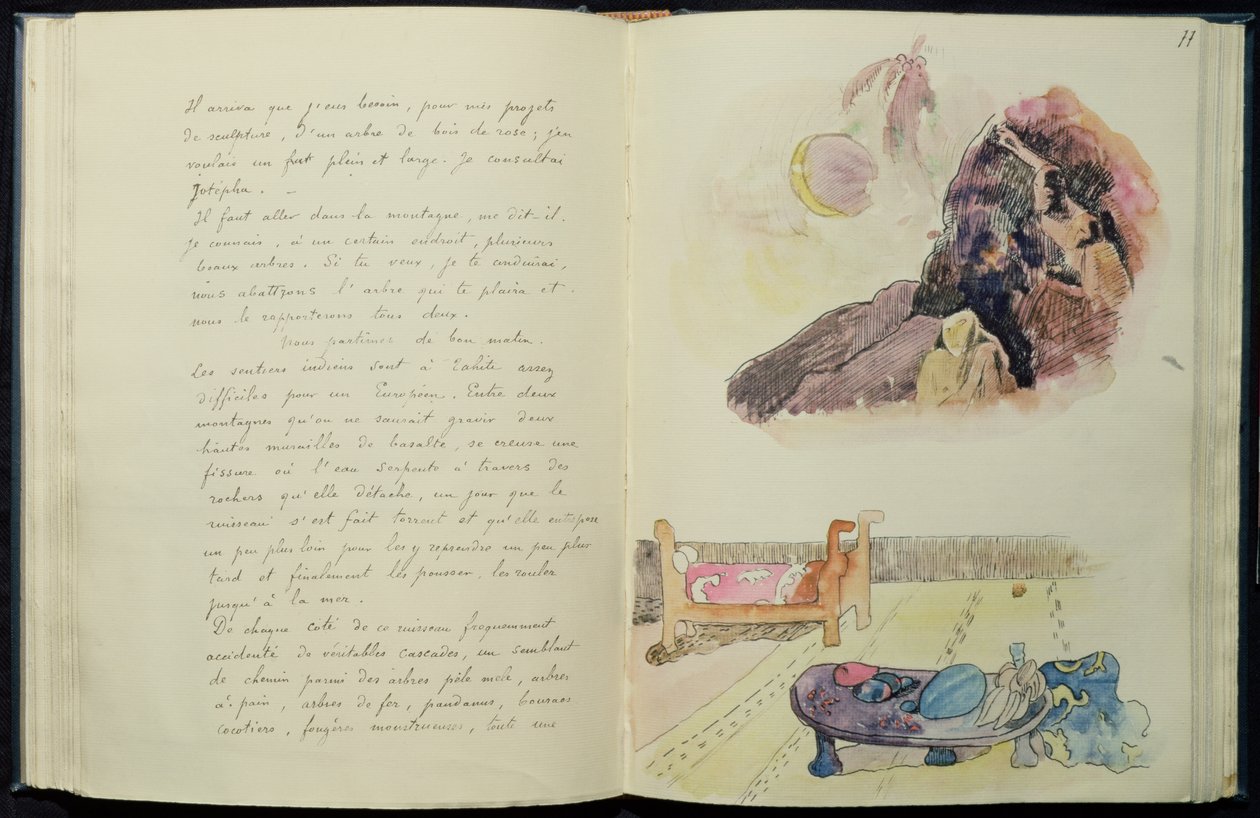 Il arriva que j'eus besoin, pour mes projets
de sculpture, d'un arbre de bois de rose; j'en
voulais un fut plein et large. Je consultai
Jotépha. —
Il faut aller dans la montagne, me dit-il.
Je connais, à un certain endroit, plusieurs
beaux arbres. Si tu veux, je te conduirai,
nous abattrons l'arbre qui te plaira et
nous le rapporterons tous deux.
Nous partîmes de bon matin.
Les sentiers indiens sont à Tahiti assez
difficiles pour un Européen. Entre deux
montagnes qu'on ne saurait gravir deux
hautes murailles de basalte, se creuse une
fissure où l'eau serpente à travers des
rochers qu'elle détache, un jour que le
ruisseau s'est fait torrent et qu'elle entrepose
un peu plus loin pour les y reprendre un peu plus
tard et finalement les pousser, les rouler
jusqu'à la mer.
De chaque coté de ce ruisseau frequemment
accidenté de véritables cascades, un semblant
de chemin parmi des arbres pêle mele, arbres
à pain, arbres de fer, pandanus, bouraos
cocotiers, fougères monstrueuses, toute une
77